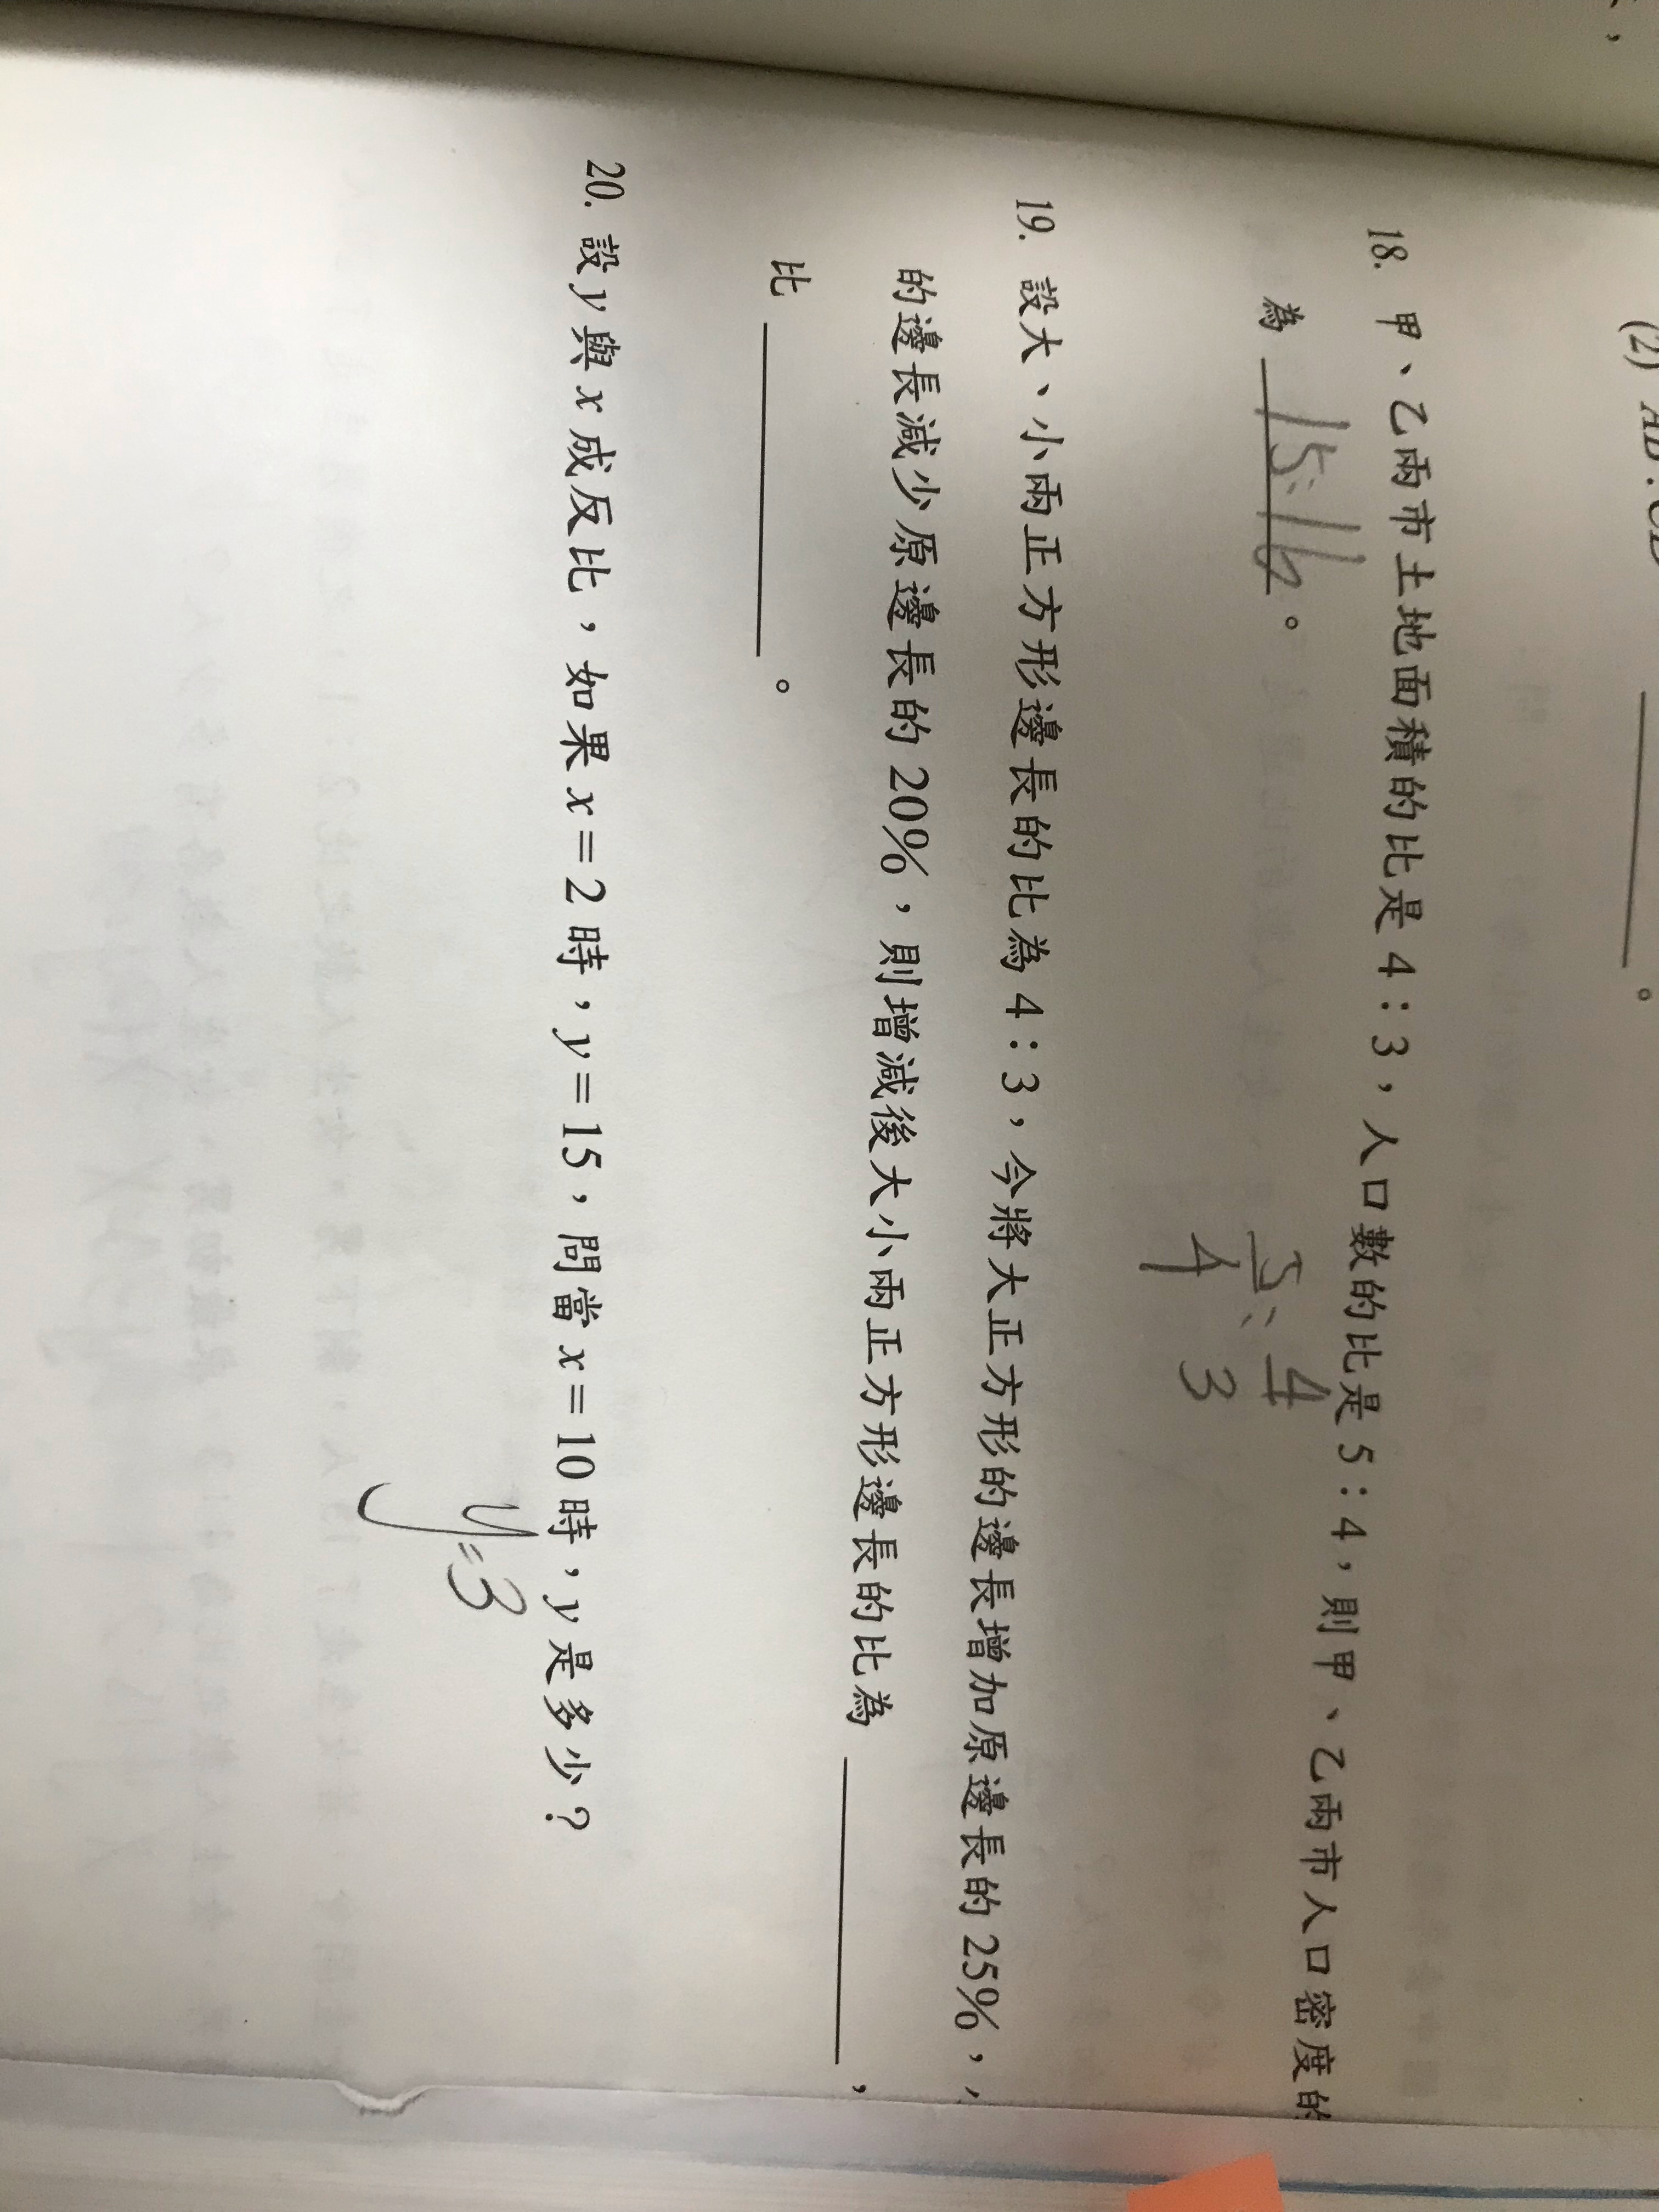 (2)
18. 甲、乙兩市土地面積的比是 4：3，人口數的比是 5：4，則甲、乙兩市人口密度的
為 15:16 。
5/4 : 4/3
19. 設大、小兩正方形邊長的比為 4：3，今將大正方形的邊長增加原邊長的 25%，
的邊長減少原邊長的 20%，則增減後大小兩正方形邊長的比為 ＿＿＿，
比 ＿＿＿。
20. 設 y 與 x 成反比，如果 x＝2 時，y＝15，問當 x＝10 時，y 是多少？
y=3